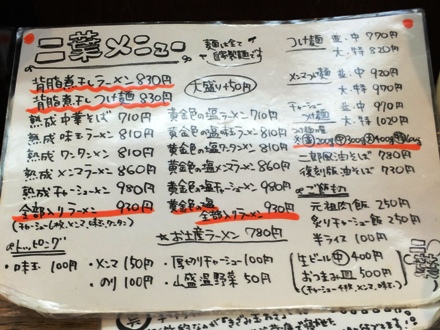 二葉メニュー
麺は全て
自家製麺です
背脂煮干しラーメン 830円
背脂煮干しつけ麺 830円
大盛り+50円
熟成中華そば 710円
熟成味玉ラーメン 810円
熟成ワンタンメン 810円
熟成メンマラーメン 860円
熟成チャーシューメン 980円
全部入りラーメン 930円
(チャーシュー1枚、メンマ、味玉、ワンタン)
黄金色の塩ラーメン 710円
黄金色の塩味玉ラーメン 810円
黄金色の塩ワンタンメン 810円
黄金色の塩メンマラーメン 860円
黄金色の塩チャーシューメン 980円
黄金色の塩
全部入りラーメン 930円
☆お土産ラーメン 780円
つけ麺 並・中 770円
大・特 820円
メンマつけ麺 並・中 920円
大・特 970円
チャーシュー
つけ麺 並・中 970円
大・特 1020円
二郎風油そば 780円
復刻版油そば 730円
ご飯物
元祖肉飯 250円
炙りチャーシュー飯 250円
半ライス 100円
生ビール(中) 400円
おつまみ皿 500円
(チャーシュー4枚、メンマ、味玉)
二葉
トッピング
・味玉 100円
・メンマ 150円
・のり 100円
・厚切りチャーシュー 100円
・山盛温野菜 50円